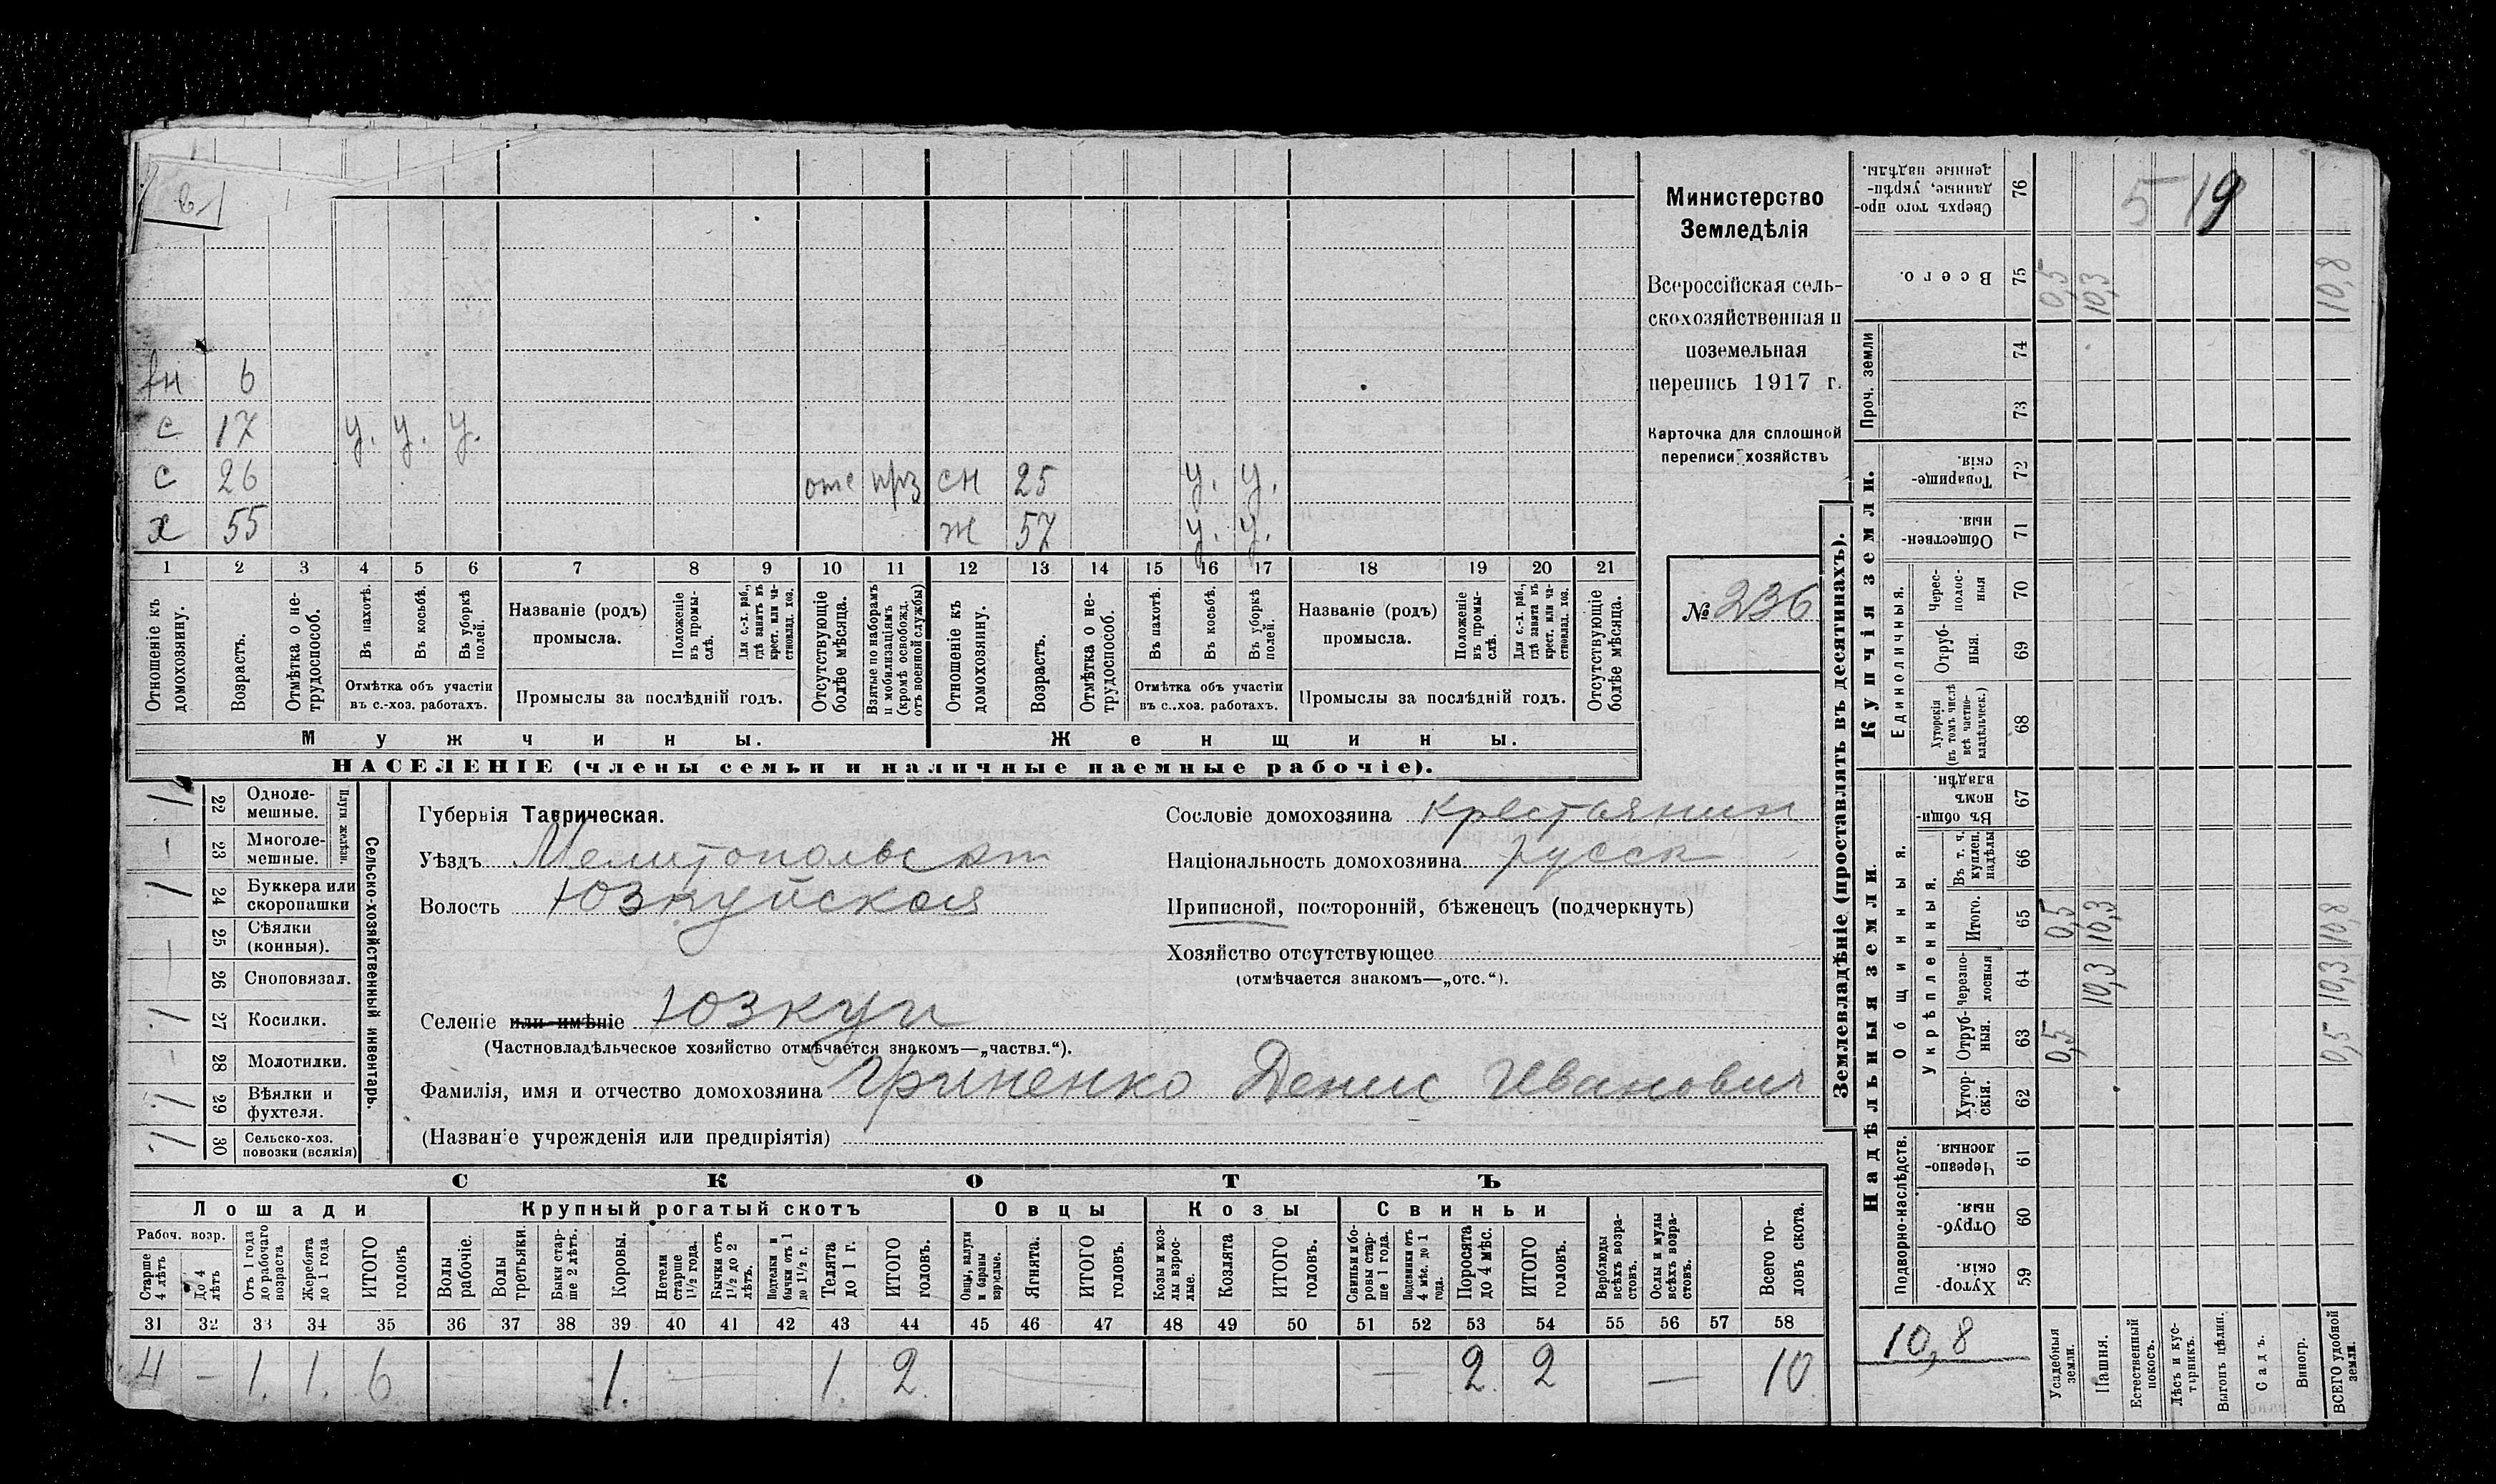 Министерство
Земледѣлія
Всероссійская сель-
скохозяйственная и
поземельная
перепись 1917 г.
Карточка для сплошной
переписи хозяйствъ
№ 236
6
с 17 у. у. у.
с 26 отс 25 у. у.
х 55 ж 57 у. у.
1 2 3 4 5 6 7 8 9 10 11 12 13 14 15 16 17 18 19 20 21
Отношеніе къ домохозяину.
Возрастъ.
Отмѣтка о не-трудоспособ.
Въ пахотѣ.
Въ косьбѣ.
Въ уборкѣ полей.
Отмѣтка объ участіи
въ с.-хоз. работахъ.
Названіе (родъ)
промысла.
Положеніе въ промы-слѣ.
Для с.-х. раб., гдѣ занятъ въ крест. или ча-стновлад. хоз.
Промыслы за послѣдній годъ.
Отсутствующіе болѣе мѣсяца.
Взятые по наборамъ и мобилизаціямъ (кромѣ освобожд. отъ военной службы)
Отношеніе къ домохозяину.
Возрастъ.
Отмѣтка о не-трудоспособ.
Въ пахотѣ.
Въ косьбѣ.
Въ уборкѣ полей.
Отмѣтка объ участіи
въ с..хоз. работахъ.
Названіе (родъ)
промысла.
Положеніе въ промы-слѣ.
Для с.-х. раб., гдѣ занята въ крест. или ча-стновлад. хоз.
Промыслы за послѣдній годъ.
Отсутствующіе болѣе мѣсяца.
Мужчины. Женщины.
НАСЕЛЕНІЕ (члены семьи и наличные наемные рабочіе).
Сельско-хозяйственный инвентарь.
Плуги желѣзн.
1 22 Одноле-мешные.
- 23 Многоле-мешные.
1 24 Буккера или скоропашки
- 25 Сѣялки (конныя).
- 26 Сноповязал.
1 27 Косилки.
- 28 Молотилки.
29 Вѣялки и фухтеля.
30 Сельско-хоз. повозки (всякія)
Губернія Таврическая.
Уѣздъ Мелитопольск
Волость Юзкуйская
Селеніе или имѣніе Юзкуи
(Частновладѣльческое хозяйство отмѣчается знакомъ—„частвл.“).
Сословіе домохозяина крестьянин
Національность домохозяина русск
Приписной, посторонній, бѣженецъ (подчеркнуть)
Хозяйство отсутствующее
(отмѣчается знакомъ—„отс.“).
Фамилія, имя и отчество домохозяина Гриненко Денис Иванович
(Названіе учрежденія или предпріятія)
СКОТЪ
Лошади Крупный рогатый скотъ Овцы Козы Свиньи
Рабоч. возр.
Старше 4 лѣтъ
До 4 лѣтъ
Отъ 1 года до рабочаго возраста
Жеребята до 1 года
ИТОГО головъ
Волы рабочіе.
Волы третьяки.
Быки стар-ше 2 лѣтъ.
Коровы.
Нетели старше 1½ года.
Бычки отъ 1½ до 2 лѣтъ.
Подтелки и бычки отъ 1 до 1½ г.
Телята до 1 г.
ИТОГО головъ.
Овцы, валухи и бараны взрослые.
Ягнята.
ИТОГО головъ.
Козы и коз-лы взрос-лые.
Козлята
ИТОГО головъ.
Свиньи и бо-ровы стар-ше 1 года.
Подсвинки отъ 4 мѣс. до 1 года.
Поросята до 4 мѣс.
ИТОГО головъ.
Верблюды всѣхъ возра-стовъ.
Ослы и мулы всѣхъ возра-стовъ.
Всего го-ловъ скота.
31 32 33 34 35 36 37 38 39 40 41 42 43 44 45 46 47 48 49 50 51 52 53 54 55 56 57 58
4 - 1. 1. 6 1. 1. 2 - 2 2 - 10
Землевладѣніе (проставлять въ десятинахъ).
Купчія земли.
Надѣльныя земли.
Сверхъ того про-данные, укрѣп-ленные надѣлы. 76 5 19
Всего. 75 0,5 10,3 10,8
Проч. земли 74
73
Товарище-скія. 72
Обществен-ныя. 71
Единоличныя.
Черес-полос-ныя 70
Отруб-ныя. 69
Хуторскія (въ томъ числѣ всѣ частно-владѣльческ.) 68
Общинныя.
Въ общин-номъ владѣн. 67
Укрѣпленныя.
Въ т. ч. куплен. надѣлы 66
Итого. 65 0,5 10,3 10,8
Черезпо-лосныя 64 10,3 10,3
Отруб-ныя. 63 0,5 0,5
Хутор-скія. 62
Подворно-наслѣдств.
Черезпо-лосныя 61
Отруб-ныя. 60
Хутор-скія. 59
10,8
Усадебныя земли.
Пашня.
Естественный покосъ.
Лѣсъ и кус-тарникъ.
Выгонъ цѣлин.
Садъ.
Виногр.
ВСЕГО удобной земли.